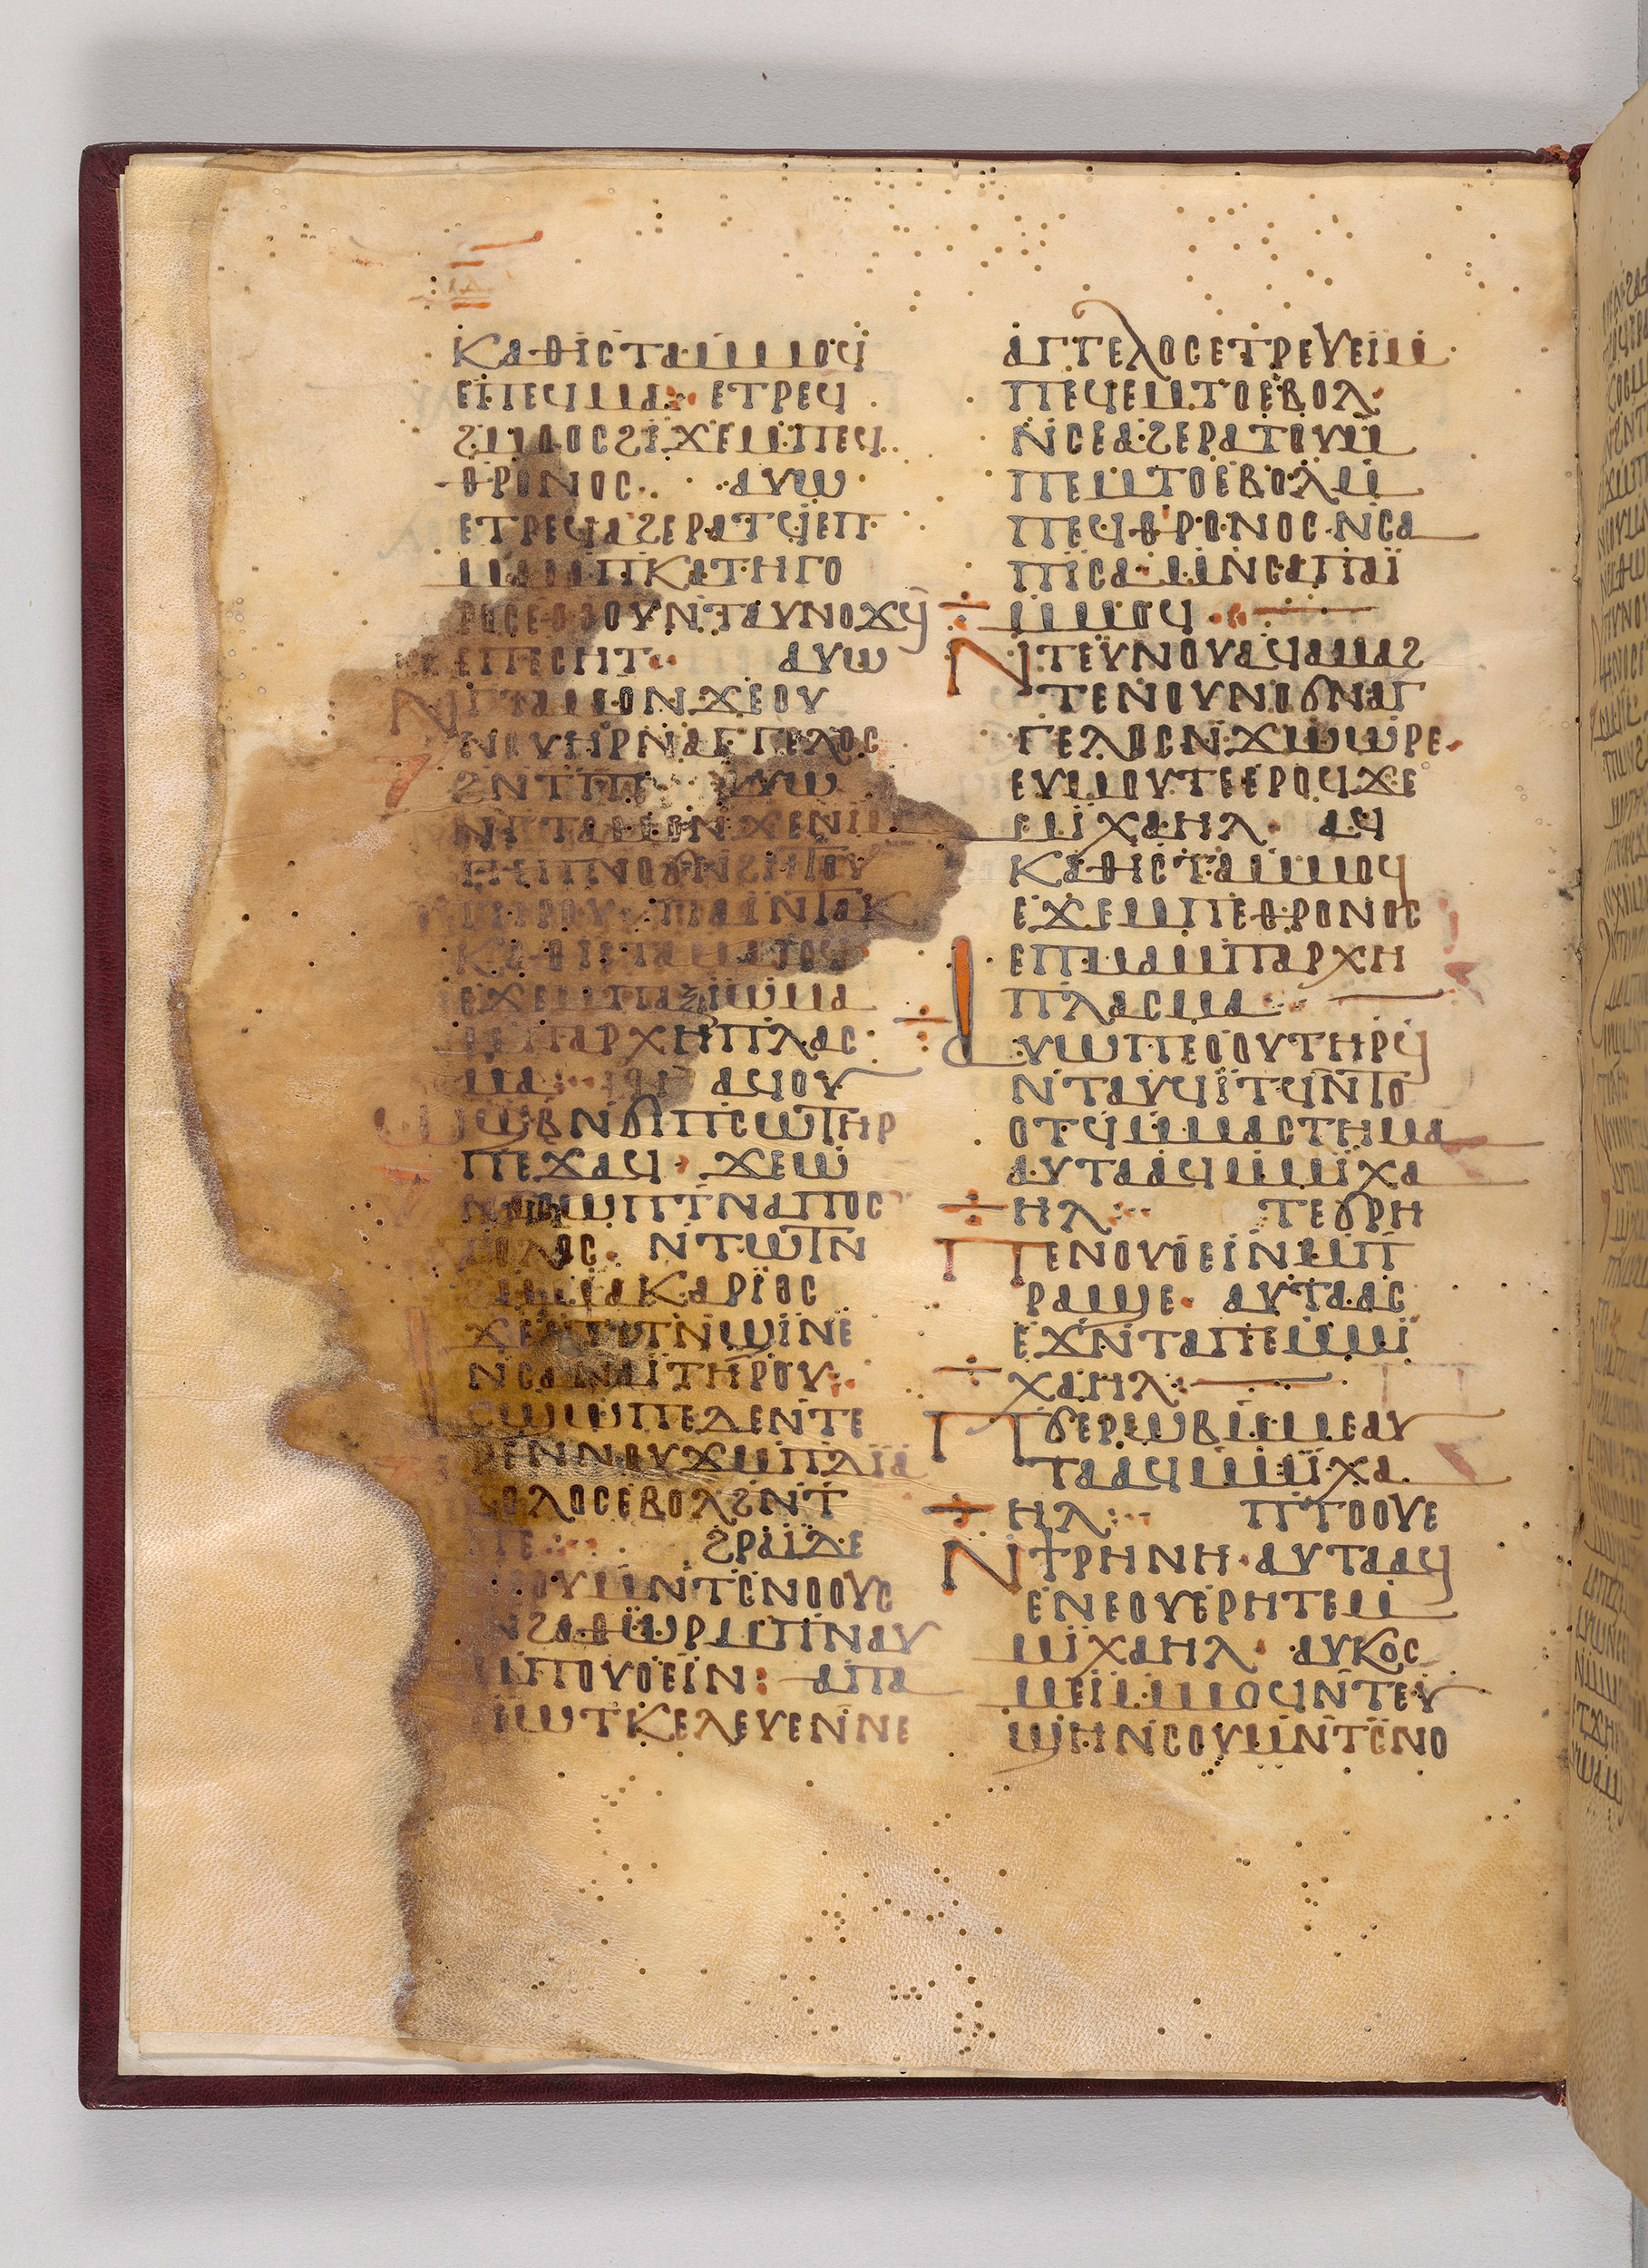 ⲕⲁⲑⲓⲥⲧⲁⲙⲙⲟϥ
ⲉⲡⲉϥⲙⲁ ⲉⲧⲣⲉϥ
ϩⲙⲟⲟⲥϩⲓϫⲉⲙⲡⲉϥ
ⲑⲣⲟⲛⲟⲥ· ⲁⲩⲱ
ⲉⲧⲣⲉϥⲁϩⲉⲣⲁⲧϥⲉⲡ
ⲙⲁⲙⲡⲕⲁⲧⲏⲅⲟ
ⲣⲟⲥⲉⲑⲟⲟⲩⲛⲧⲁⲩⲛⲟϫϥ
ⲉⲡⲉⲥⲏⲧ· ⲁⲩⲱ
ⲛⲅⲧⲁⲙⲟⲛϫⲉⲟⲩ
ⲛⲟⲩⲏⲣⲛⲁⲅⲅⲉⲗⲟⲥ
ϩⲛⲧⲡⲉ ⲁⲩⲱ
ⲛⲅⲧⲁⲙⲟⲛϫⲉⲛⲓⲙ
ⲡⲉⲡⲛⲟϭⲛϩⲏⲧⲟⲩ
ⲧⲏⲣⲟⲩ ⲡⲁⲓⲛⲧⲁⲕ
ⲕⲁⲑⲓⲥⲧⲁⲙⲙⲟϥ
ⲉϫⲉⲙⲡⲁⲝⲓⲱⲙⲁ
ⲙⲡⲁⲣⲭⲏⲡⲗⲁⲥ
ⲙⲁ ⲁϥⲟⲩ
ⲱϣⲃⲛϭⲡⲥⲱⲧⲏⲣ
ⲡⲉϫⲁϥ· ϫⲉⲱ
ⲛⲁⲥⲱⲧⲡⲛⲁⲡⲟⲥ
ⲧⲟⲗⲟⲥ· ⲛⲧⲱⲧⲛ
ϩⲙⲙⲁⲕⲁⲣⲓⲟⲥ
ϫⲉⲁⲧⲉⲧⲛϣⲓⲛⲉ
ⲛⲥⲁⲛⲁⲓⲧⲏⲣⲟⲩ
ⲥⲱⲱⲡⲉⲇⲉⲛⲧⲉ
ⲣⲉⲛⲛⲟⲩϫⲙⲡⲇⲓⲁ
ⲃⲟⲗⲟⲥⲉⲃⲟⲗϩⲛⲧ
ⲡⲉ ϩⲣⲁⲓⲇⲉ
ⲛⲥⲟⲩⲙⲛⲧⲥⲛⲟⲟⲩⲥ
ⲛϩⲁⲑⲱⲣⲙⲡⲛⲁⲩ
ⲙⲡⲟⲩⲟⲉⲓⲛ· ⲁⲡⲁ
ⲉⲓⲱⲧⲕⲉⲗⲉⲩⲉⲛⲛⲉ
ⲁⲅⲅⲉⲗⲟⲥⲉⲧⲣⲉⲩⲉⲓⲙ
ⲡⲉϥⲉⲙⲧⲟⲉⲃⲟⲗ
ⲛⲥⲉⲁϩⲉⲣⲁⲧⲟⲩⲙ
ⲡⲉⲙⲧⲟⲉⲃⲟⲗⲙ
ⲡⲉϥⲑⲣⲟⲛⲟⲥⲛⲥⲁ
ⲡⲓⲥⲁⲙⲛⲛⲥⲁⲡⲁⲓ
ⲙⲙⲟϥ·
ⲛⲧⲉⲩⲛⲟⲩⲁϥⲁⲙⲁϩ
ⲧⲉⲛⲟⲩⲛⲟϭⲛⲁⲅ
ⲅⲉⲗⲟⲥⲛϫⲱⲱⲣⲉ
ⲉⲩⲙⲟⲩⲧⲉⲉⲣⲟϥϫⲉ
ⲙⲓⲭⲁⲏⲗ· ⲁϥ
ⲕⲁⲑⲓⲥⲧⲁⲙⲙⲟϥ
ⲉϫⲉⲙⲡⲉⲑⲣⲟⲛⲟⲥ
ⲉⲡⲙⲁⲙⲡⲁⲣⲭⲏ
ⲡⲗⲁⲥⲙⲁ
ⲁⲩⲱⲡⲉⲟⲟⲩⲧⲏⲣϥ
ⲛⲧⲁⲩϥⲓⲧϥⲛⲧⲟ
ⲟⲧϥⲙⲙⲁⲥⲧⲏⲙⲁ
ⲁⲩⲧⲁⲁϥⲙⲙⲓⲭⲁ
ⲏⲗ ⲧⲉϭⲣⲏ
ⲡⲉⲛⲟⲩⲟⲉⲓⲛⲙⲡ
ⲣⲁϣⲉ· ⲁⲩⲧⲁⲁⲥ
ⲉϫⲛⲧⲁⲡⲉⲙⲙⲓ
ⲭⲁⲏⲗ
ⲡϭⲉⲣⲱⲃⲙⲙⲉⲁⲩ
ⲧⲁⲁϥⲙⲙⲓⲭⲁ
ⲏⲗ ⲡⲧⲟⲟⲩⲉ
ⲛϯⲣⲏⲛⲏ·ⲁⲩⲧⲁⲁϥ
ⲉⲛⲉⲟⲩⲉⲣⲏⲧⲉⲙ
ⲙⲓⲭⲁⲏⲗ· ⲁⲩⲕⲟⲥ
ⲙⲉⲓⲙⲙⲟϥⲛⲧⲉⲩ
ϣⲏⲛⲥⲟⲩⲙⲛⲧⲥⲛⲟ